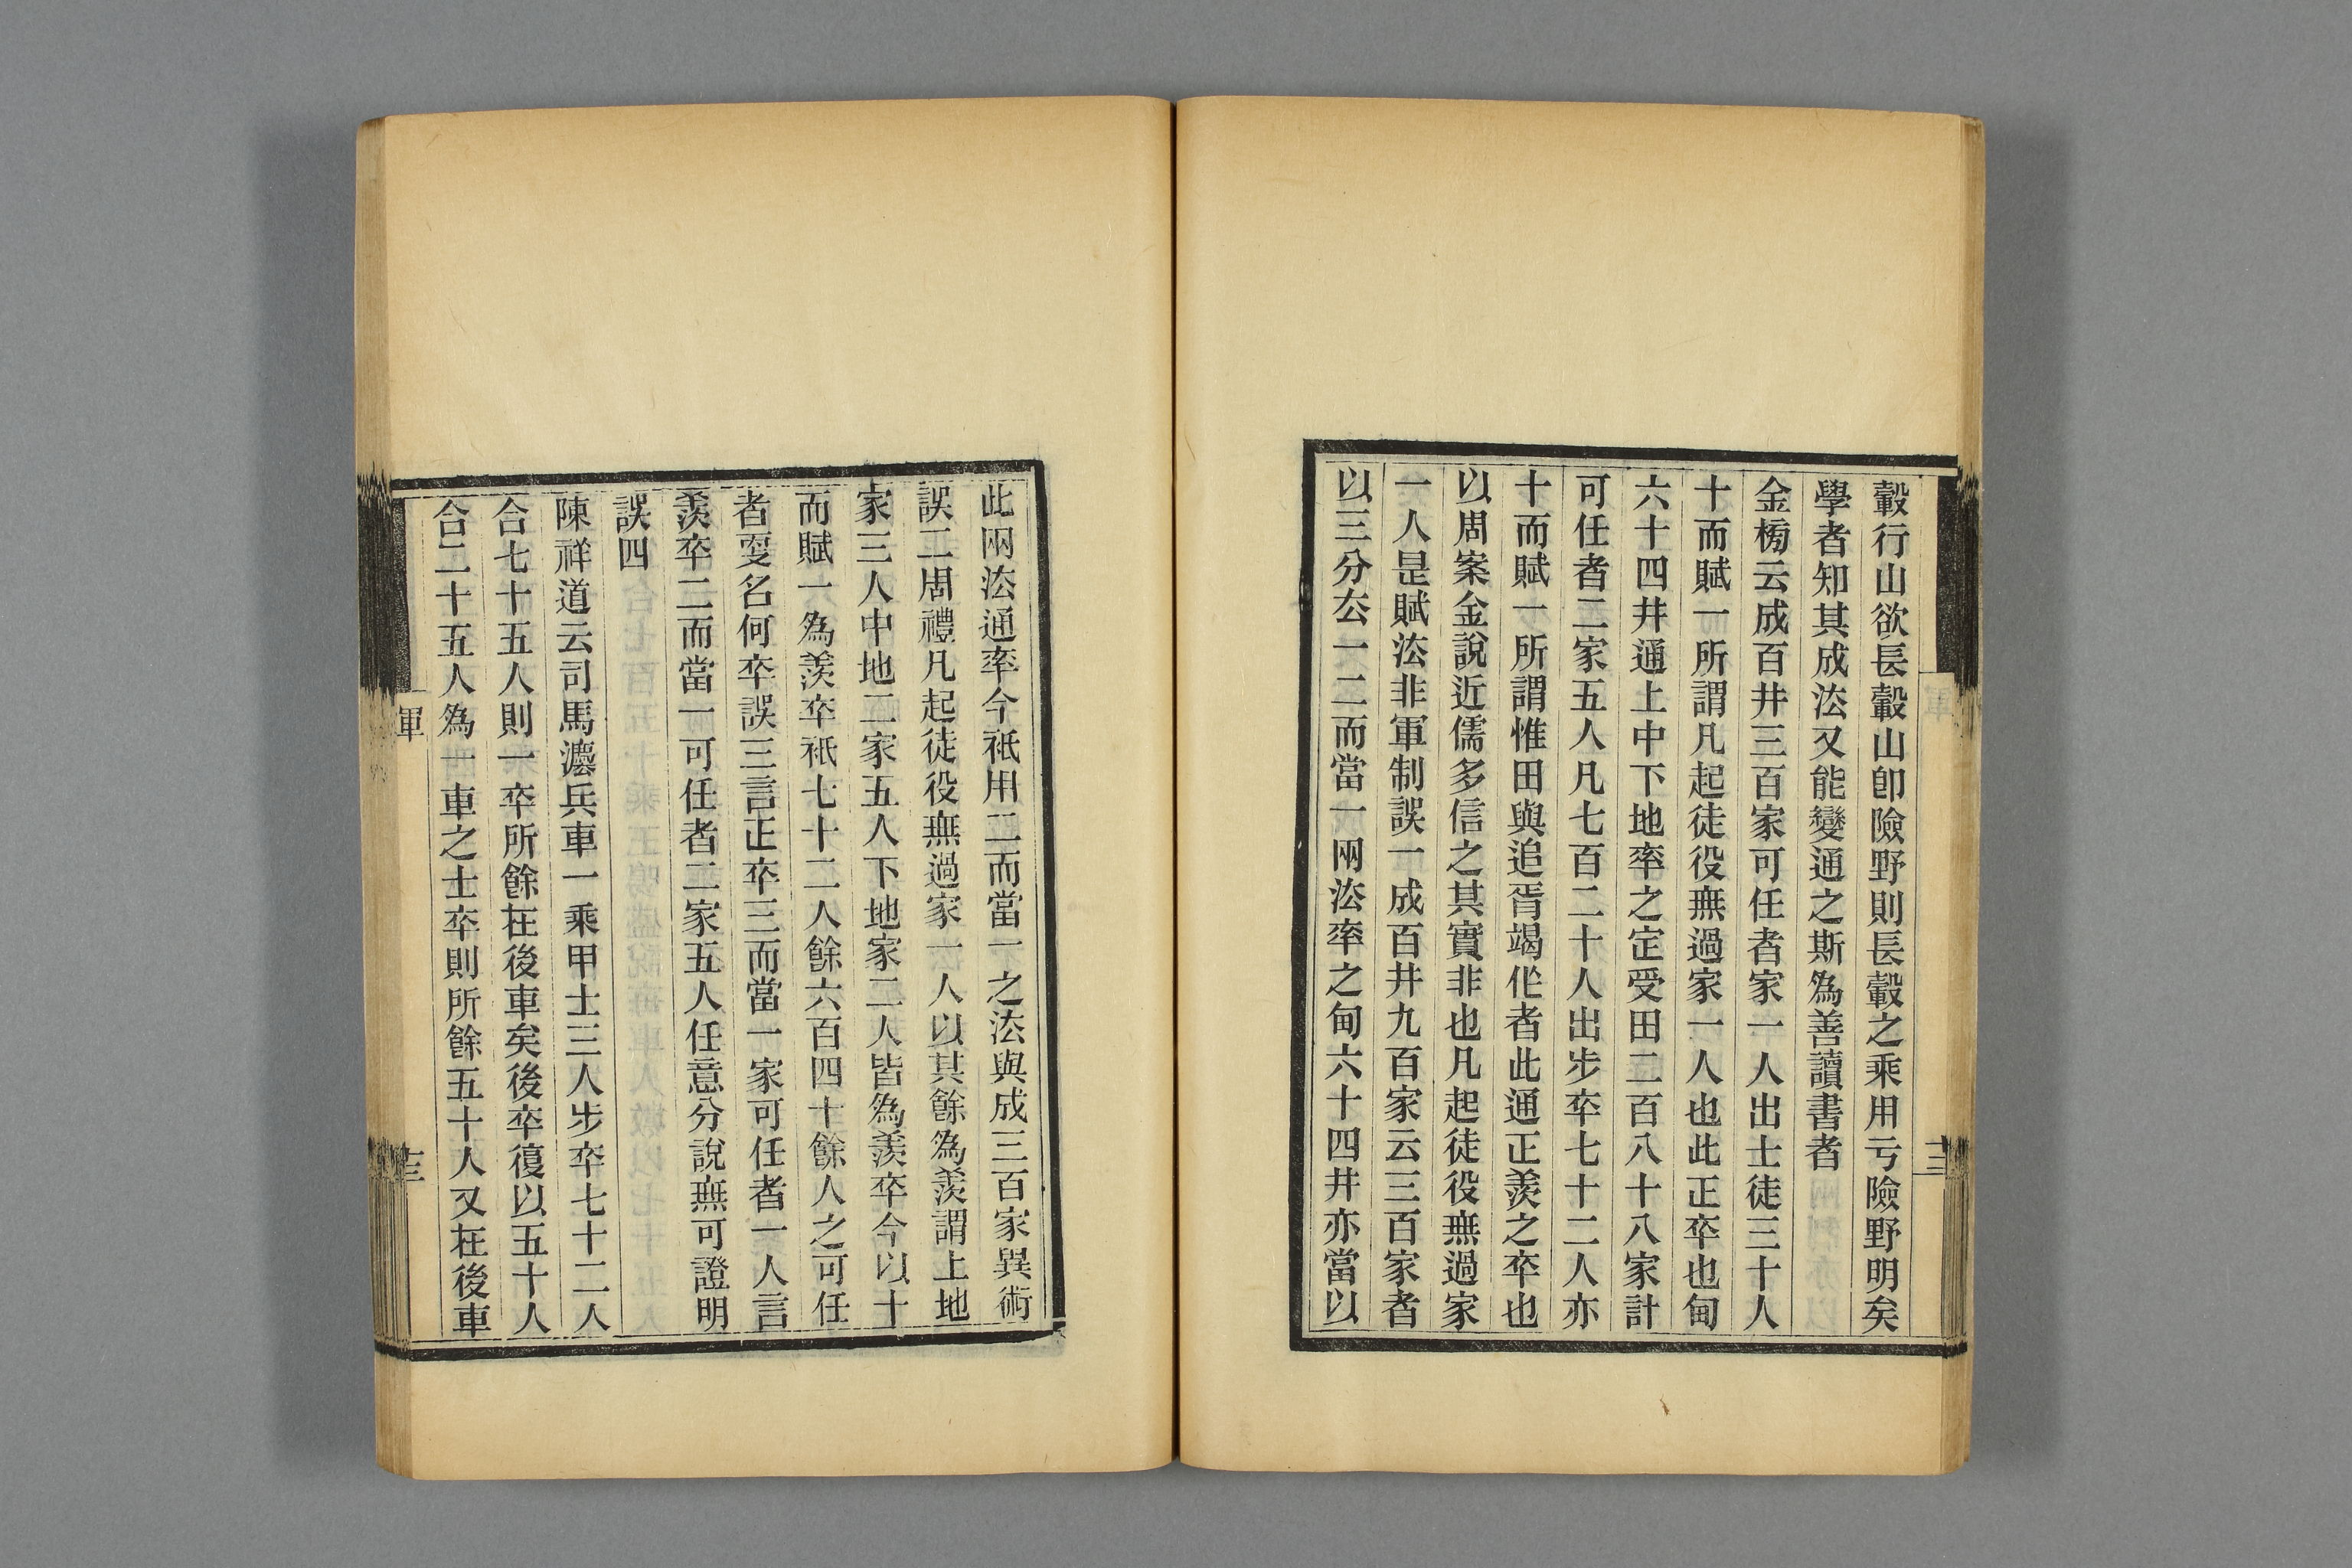 轂行山欲長轂山卽險野則長轂之乘用亏險野明矣
學者知其成法又能變通之斯為善讀書者
金榜云成百井三百家可任者家一人出士徒三十人
十而賦一所謂凡起徒役無過家一人也此正卒也甸
六十四井通上中下地率之定受田二百八十八家計
可任者二家五人凡七百二十人出步卒七十二人亦
十而賦一所謂惟田與追胥竭作者此通正羨之卒也
以周案金說近儒多信之其實非也凡起徒役無過家
一人是賦法非軍制誤一成百井九百家云三百家者
以三分厺一二而當一兩法率之甸六十四井亦當以
此兩法通率今祇用二而當一之法與成三百家異術
誤二周禮凡起徒役無過家一人以其餘為羨謂上地
家三人中地二家五人下地家二人皆為羨卒今以十
而賦一為羨卒祇七十二人餘六百四十餘人之可任
者耍名何卒誤三言正卒三而當一家可任者一人言
羨卒二而當一可任者二家五人任意分說無可證明
誤四
陳祥道云司馬灋兵車一乘甲士三人步卒七十二人
合七十五人則一卒所餘在後車矣後卒復以五十人
合二十五人為一車之士卒則所餘五十人又在後車
軍
十三